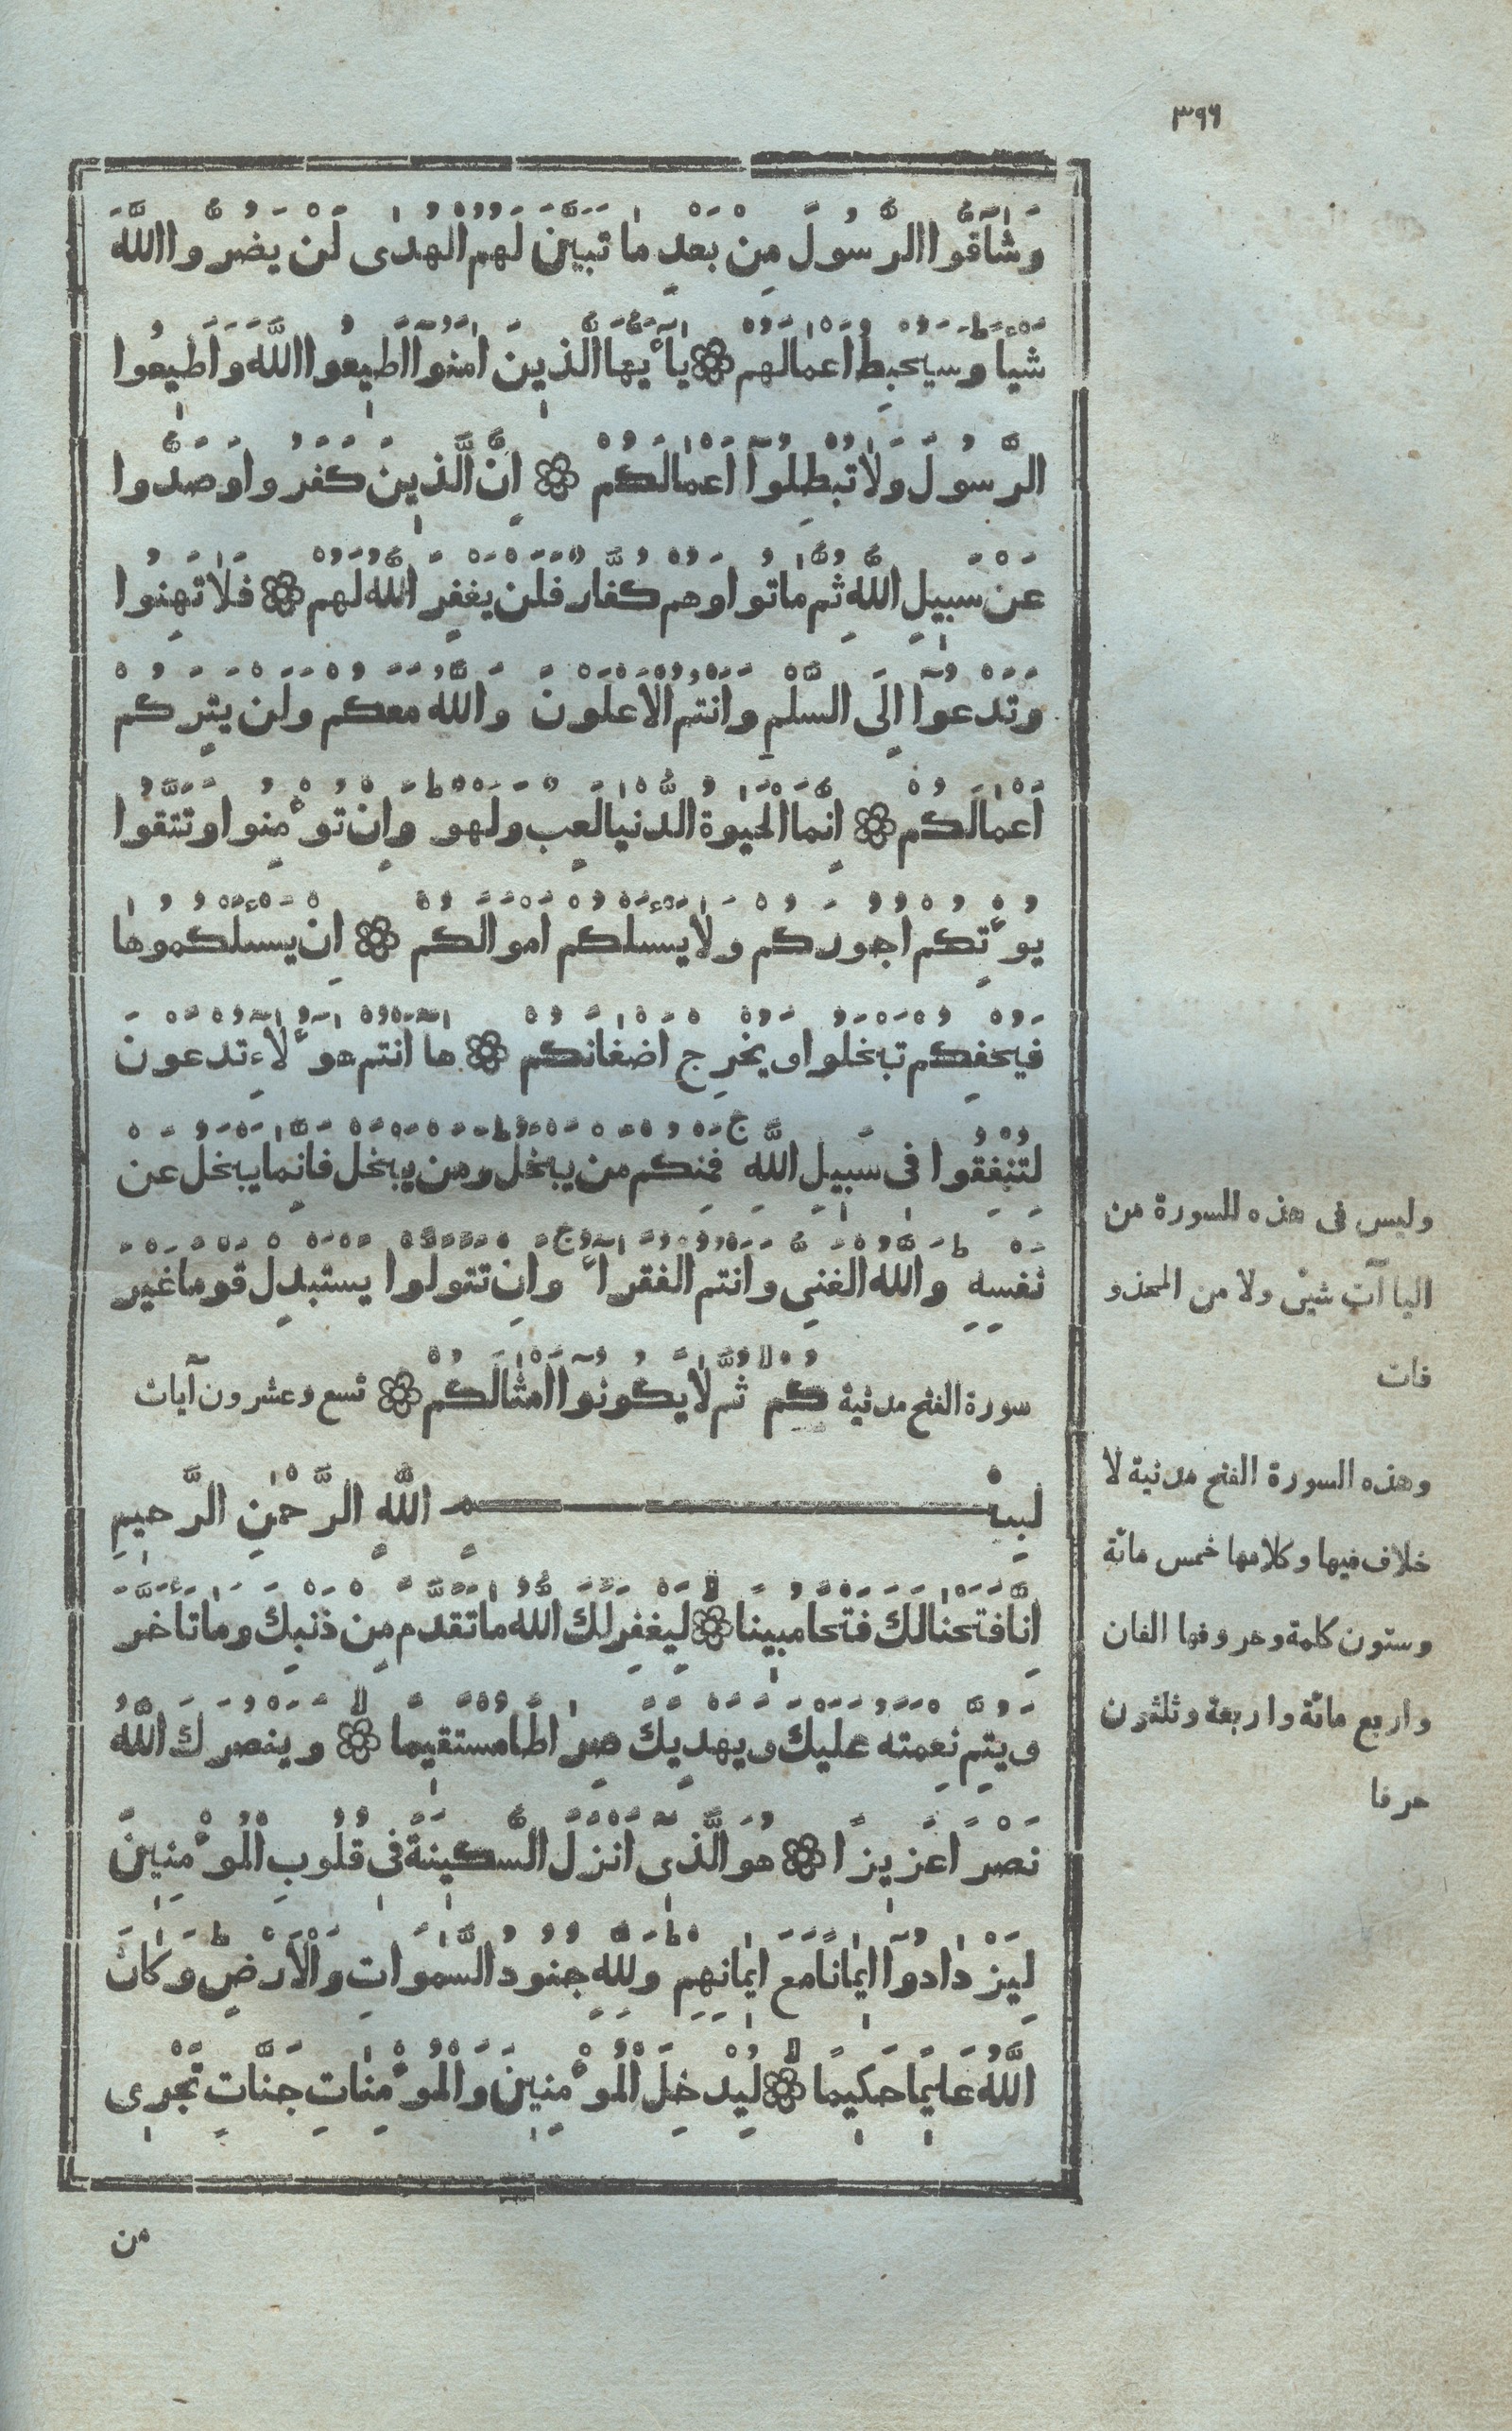 ٣٩٦
وَشَآقُّوا الرَّسُولَ مِنْ بَعْدِ مَا تَبَيَّنَ لَهُمُ الْهُدٰى لَنْ يَضُرُّوا اللَّهَ
شَيْـًٔا وَسَيُحْبِطُ اَعْمَالَهُمْ ۞ يَآ أَيُّهَا الَّذِينَ اٰمَنُوٓا اَطِيعُوا اللَّهَ وَاَطِيعُوا
الرَّسُولَ وَلَا تُبْطِلُوٓا اَعْمَالَكُمْ ۞ اِنَّ الَّذِينَ كَفَرُوا وَصَدُّوا
عَنْ سَبِيلِ اللَّهِ ثُمَّ مَاتُوا وَهُمْ كُفَّارٌ فَلَنْ يَغْفِرَ اللَّهُ لَهُمْ ۞ فَلَا تَهِنُوا
وَتَدْعُوٓا اِلَى السَّلْمِ وَاَنْتُمُ الْاَعْلَوْنَ وَاللَّهُ مَعَكُمْ وَلَنْ يَتِرَكُمْ
اَعْمَالَكُمْ ۞ اِنَّمَا الْحَيٰوةُ الدُّنْيَا لَعِبٌ وَلَهْوٌ ط وَاِنْ تُؤْمِنُوا وَتَتَّقُوا
يُؤْتِكُمْ اُجُورَكُمْ وَلَا يَسْـَٔلْكُمْ اَمْوَالَكُمْ ۞ اِنْ يَسْـَٔلْكُمُوهَا
فَيُحْفِكُمْ تَبْخَلُوا وَيُخْرِجْ اَضْغَانَكُمْ ۞ هَآ اَنْتُمْ هٰٓؤُلَآءِ تُدْعَوْنَ
لِتُنْفِقُوا فِى سَبِيلِ اللَّهِ ج فَمِنْكُمْ مَنْ يَبْخَلُ ط وَمَنْ يَبْخَلْ فَاِنَّمَا يَبْخَلُ عَنْ
نَفْسِهِ ط وَاللَّهُ الْغَنِىُّ وَاَنْتُمُ الْفُقَرَآءُ ج وَاِنْ تَتَوَلَّوْا يَسْتَبْدِلْ قَوْمًا غَيْرَ
سورة الفتح مدنية كُمْ لا ثُمَّ لَا يَكُونُوٓا اَمْثَالَكُمْ ۞ تسع وعشرون آيات
بِسْمِ اللَّهِ الرَّحْمٰنِ الرَّحِيمِ
اِنَّا فَتَحْنَا لَكَ فَتْحًا مُبِينًا ۞ لا لِيَغْفِرَ لَكَ اللَّهُ مَا تَقَدَّمَ مِنْ ذَنْبِكَ وَمَا تَأَخَّرَ
وَيُتِمَّ نِعْمَتَهُ عَلَيْكَ وَيَهْدِيَكَ صِرَاطًا مُسْتَقِيمًا ۞ لا وَيَنْصُرَكَ اللَّهُ
نَصْرًا عَزِيزًا ۞ هُوَ الَّذِٓى اَنْزَلَ السَّكِينَةَ فِى قُلُوبِ الْمُؤْمِنِينَ
لِيَزْدَادُوٓا اِيمَانًا مَعَ اِيمَانِهِمْ ط وَلِلَّهِ جُنُودُ السَّمٰوَاتِ وَالْاَرْضِ ط وَكَانَ
اللَّهُ عَلِيمًا حَكِيمًا ۞ لا لِيُدْخِلَ الْمُؤْمِنِينَ وَالْمُؤْمِنَاتِ جَنَّاتٍ تَجْرِى
من
وليس فى هذه السورة من
الياآت شيئ ولا من المحذو
فات
وهذه السورة الفتح مدنية لا
خلاف فيها وكلامها خمس مائة
وستون كلمة وحروفها الفان
واربع مائة واربعة وثلثون
حرفا